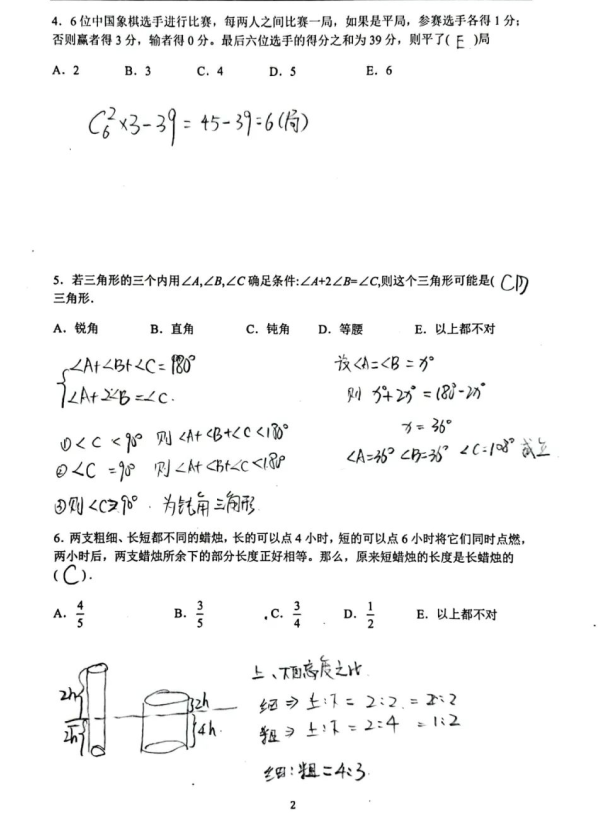 4．6位中国象棋选手进行比赛，每两人之间比赛一局，如果是平局，参赛选手各得1分；
否则赢者得3分，输者得0分。最后六位选手的得分之和为39分，则平了( E )局
A．2 B．3 C．4 D．5 E．6
C₆²×3-39=45-39=6(局)
5．若三角形的三个内用∠A,∠B,∠C确足条件:∠A+2∠B=∠C,则这个三角形可能是( CD )
三角形．
A．锐角 B．直角 C．钝角 D．等腰 E．以上都不对
∠A+∠B+∠C=180°
∠A+2∠B=∠C.
①∠C<90° 则∠A+∠B+∠C<180°
②∠C=90° 则∠A+∠B+∠C<180°
③则∠C≥90°．为钝角三角形
设∠A=∠B=x°
则 x°+2x°=180°-2x°
x=36°
∠A=36° ∠B=36° ∠C=108° 成立
6．两支粗细、长短都不同的蜡烛，长的可以点4小时，短的可以点6小时将它们同时点燃，
两小时后，两支蜡烛所余下的部分长度正好相等。那么，原来短蜡烛的长度是长蜡烛的
( C ).
A．4/5 B．3/5 C．3/4 D．1/2 E．以上都不对
2h
2h
2h
4h
上、下面高度之比
细⇒上:下=2:2=2:2
粗⇒上:下=2:4=1:2
细:粗=4:3
2